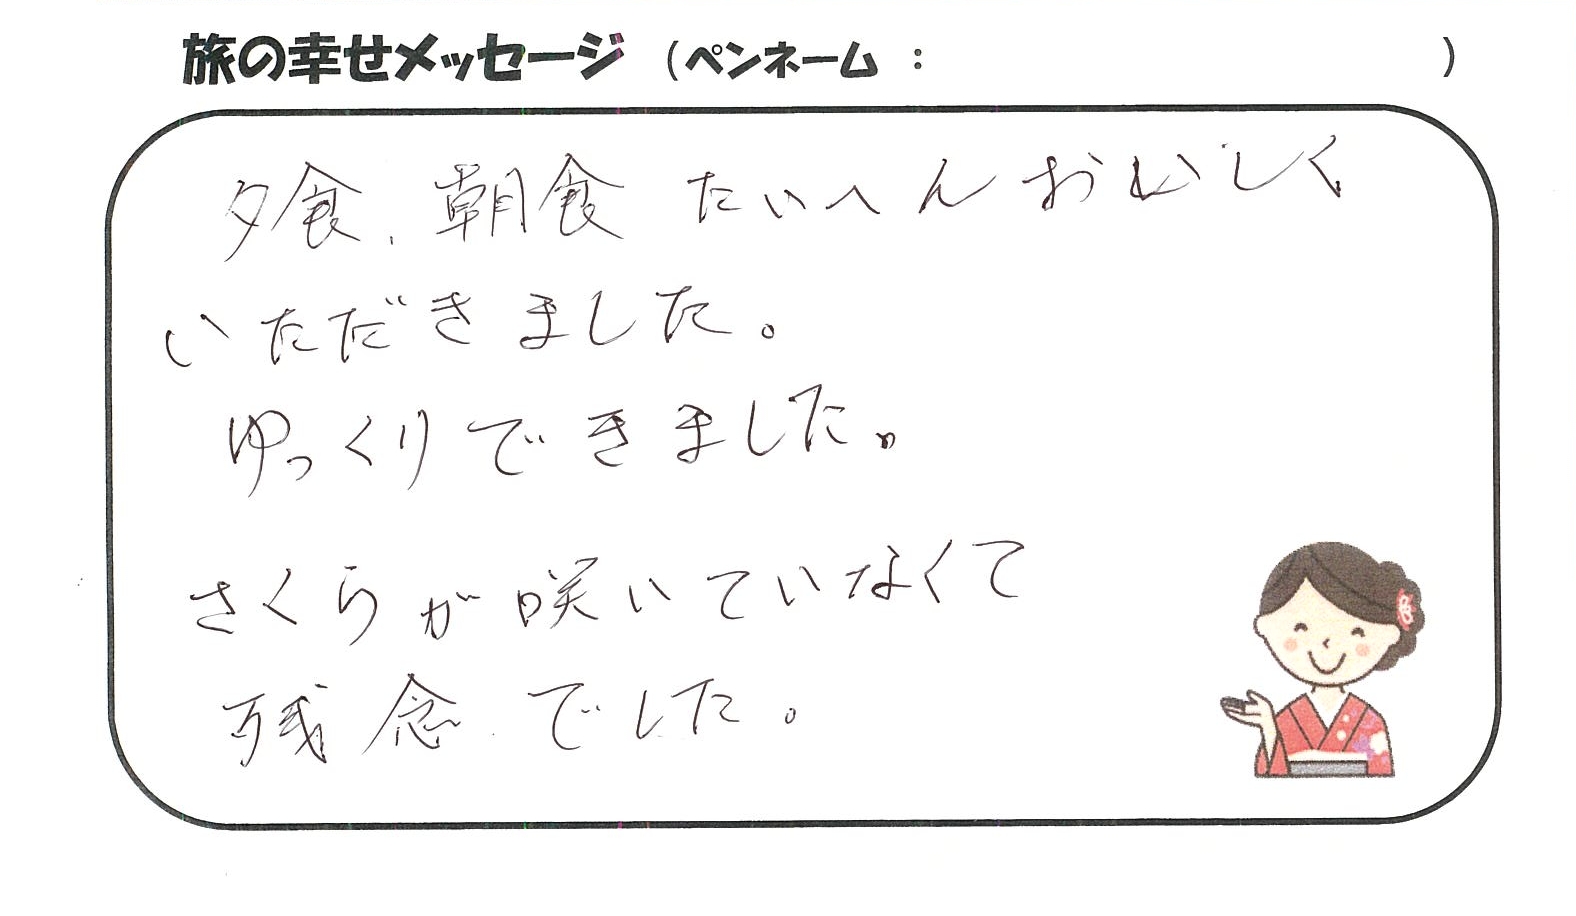 旅の幸せメッセージ （ペンネーム ： ）
夕食、朝食 たいへんおいしく
いただきました。
ゆっくりできました。
さくらが咲いていなくて
残念でした。